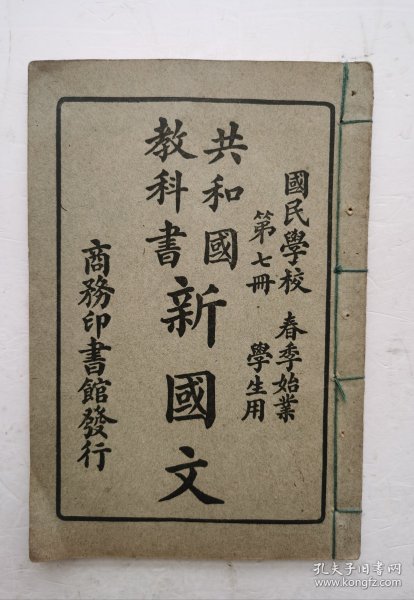 國民學校 春季始業
第七冊 學生用
共和國
教科書
新國文
商務印書館發行
孔夫子旧书网
www.kongfz.com